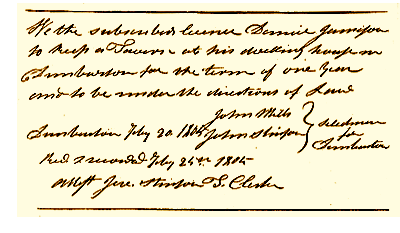 We the subscribers licence Daniel Jameson
to keep a Tavern at his dwelling house in
Dunbarton for the term of one Year
and to be under the directions of Law
John Mills
Dunbarton Feby 20 1805 John Stinson } Selectmen for Dunbarton
Recd & recorded Feby 24th 1805
Attest Jere. Stinson T. Clerk